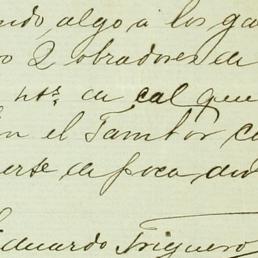 ndo, algo a los ga
o 2 obradores de
hos. de cal que
n el Tambor c
erse de poca du
Eduardo Triguero